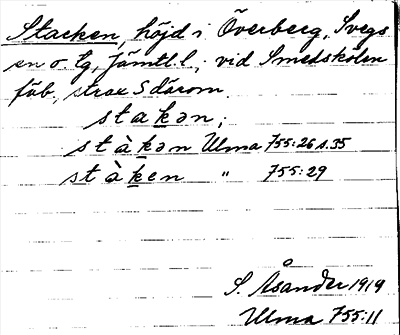 Stacken, höjd i Överberg, Svegs
sn o. tg, Jämtl. l, vid Smedskölen
fäb, strax S därom.
stakən,
stàkən Ulma 755:26 s.35
stàken " 755:29
S. Åsander 1919
Ulma 755:11